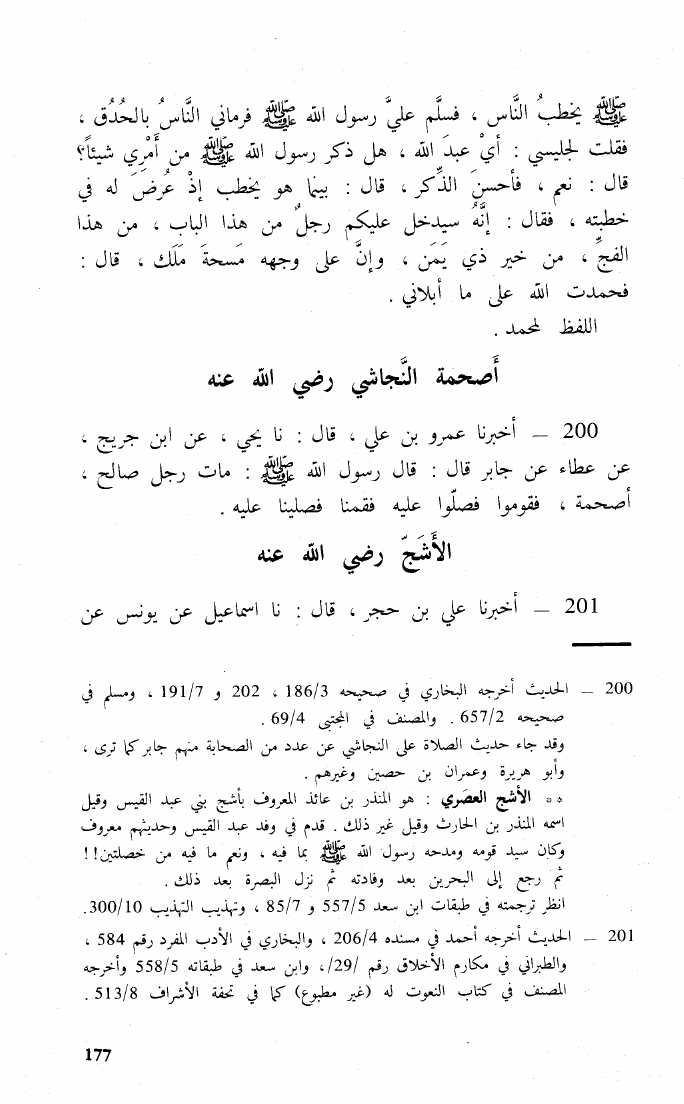 ﷺ يخطبُ النَّاس ، فسلَّم عليَّ رسول الله ﷺ فرماني النَّاسُ بالحُدُق ،
فقلت لجليسي : أيْ عبدَ الله ، هل ذكر رسول الله ﷺ من أَمْرِي شيئاً؟
قال : نعم ، فأحسنَ الذِّكر ، قال : بينما هو يخطب إذْ عُرضَ له في
خطبته ، فقال : إنَّهُ سيدخل عليكم رجلٌ من هذا الباب ، من هذا
الفجِّ ، من خير ذي يَمَن ، وإنَّ على وجهه مَسحةَ مَلَك ، قال :
فحمدت الله على ما أبلاني .
اللفظ لمحمد .
أَصحمة النَّجاشي رضي الله عنه
200 ــ أخبرنا عمرو بن علي ، قال : نا يحي ، عن ابن جريج ،
عن عطاء عن جابر قال : قال رسول الله ﷺ : مات رجل صالح ،
أصحمة ، فقوموا فصلّوا عليه فقمنا فصلينا عليه .
الأَشَجّ رضي الله عنه
201 ــ أخبرنا علي بن حجر ، قال : نا اسماعيل عن يونس عن
200 ــ الحديث أخرجه البخاري في صحيحه 186/3 ، 202 و 191/7 ، ومسلم في
صحيحه 657/2 . والمصنف في المجتبى 69/4 .
وقد جاء حديث الصلاة على النجاشي عن عدد من الصحابة منهم جابر كما ترى ،
وأبو هريرة وعمران بن حصين وغيرهم .
** الأشج العصَري : هو المنذر بن عائذ المعروف بأشج بني عبد القيس وقيل
اسمه المنذر بن الحارث وقيل غير ذلك . قدم في وفد عبد القيس وحديثهم معروف
وكان سيد قومه ومدحه رسول الله ﷺ بما فيه ، ونعم ما فيه من خصلتين!!
ثم رجع إلى البحرين بعد وفادته ثم نزل البصرة بعد ذلك .
انظر ترجمته في طبقات ابن سعد 557/5 و 85/7 ، وتهذيب التهذيب 300/10.
201 ــ الحديث أخرجه أحمد في مسنده 206/4 ، والبخاري في الأدب المفرد رقم 584 ،
والطبراني في مكارم الأخلاق رقم /29/، وابن سعد في طبقاته 558/5 وأخرجه
المصنف في كتاب النعوت له (غير مطبوع) كما في تحفة الأشراف 513/8 .
177